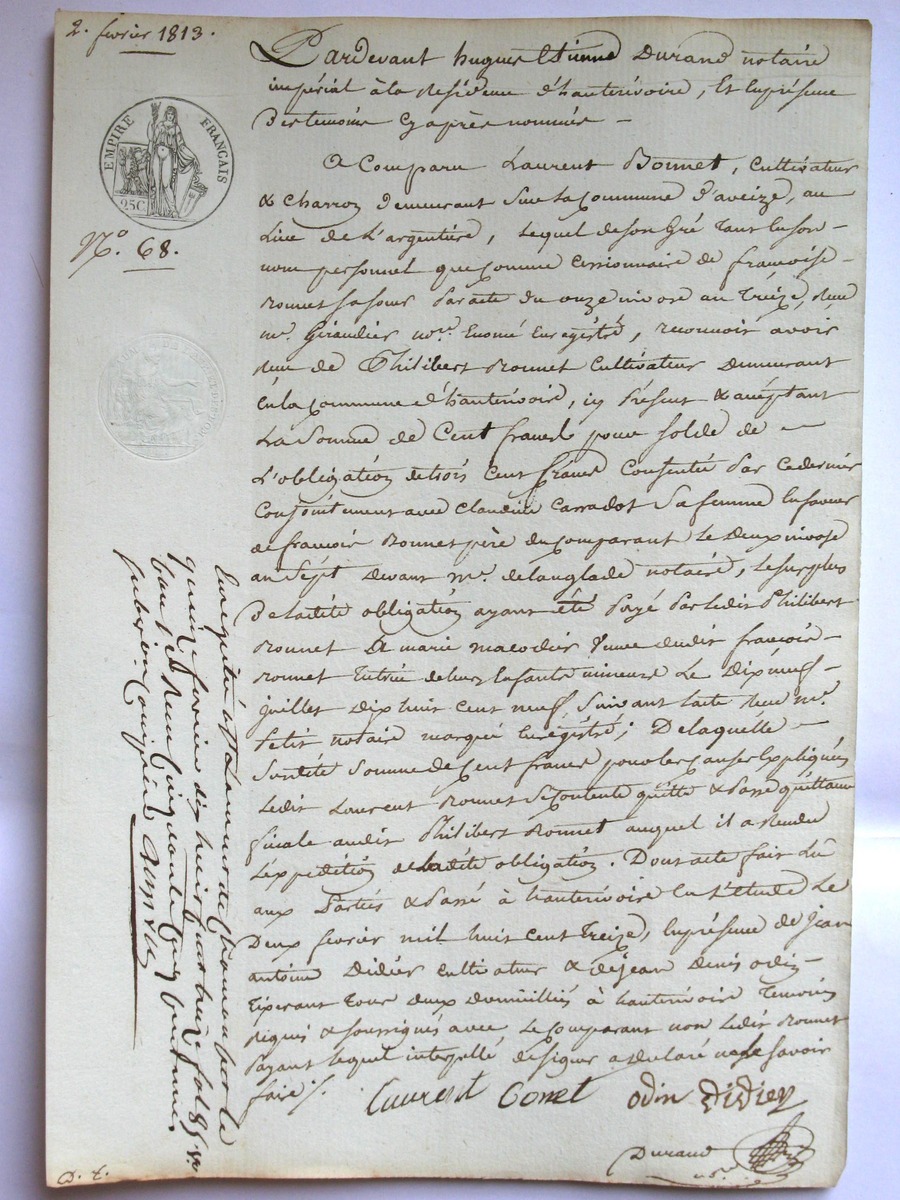 2. fevrier 1813.
EMPIRE FRANÇAIS
25C
N.º 68.
Pardevant hugues Etienne Durand notaire
impérial à la Residence d'hauterivoire, Et Enpresence
Des temoins Cy après nommés —
A Comparu Laurent Bonnet, Cultivateur
& Charron demeurant Sur la Commune d'aveize, au
Lieu de L'argentiére, Lequel de son Gré Tant En son —
nom personnel que Comme Cessionnaire de francoise —
Bonnet sa sœur Par acte du onze nivose an Treize, Reçu
m.e Giraudier no.re Enregistré, reconnoit avoir
Reçu de Philibert Bonnet Cultivateur Demeurant
En la Commune d'hauterivoire, icy Présent & acéptant
La Somme de Cent francs pour solde de —
L'obligation de trois Cent francs Consentie Par Ce dernier
Conjointement avec Claudine Carradot Sa femme En faveur
de francois Bonnet pére du Comparant Le Deux nivose
an Sept Devant m.e delanglade notaire, Le surplus
De ladite obligation ayant été Payé Par Ledit Philibert
Bonnet A marie Veuve dudit francois —
Bonnet Tutrice de Leurs Enfants mineurs Le Dix neuf —
juillet Dix huit Cent neuf Suivant L'acte Reçu m.e
Petit notaire Enrégistré; De laquelle —
Susdite Somme de Cent francs pour les Causes Expliquées
Ledit Laurent Bonnet Se Contente quitte & Passe quittance
finale audit Philibert Bonnet auquel il a Rendu
L'expedition de Ladite obligation. Dont acte fait Lu
aux Parties & Passé à hauterivoire En L'etude Le
Deux fevrier mil huit Cent Treize, En présence de jean
antoine Didier Cultivateur & de jean Denis odin —
Tisserant Tous deux Domiciliés à hauterivoire Temoins
Requis & soussignés avec Le Comparant non Ledit Bonnet
Payant Lequel interpellé de signer a déclaré ne Le Savoir
faire ./.
Laurent Bonnet odin Didier
Durand
n.re
Enregistré à St Laurent de Chamousset le
quinze fevrier dix huit cent treize fol 85 v.o
Reçu cinquante cinq centimes
subvention comprise
D. t.